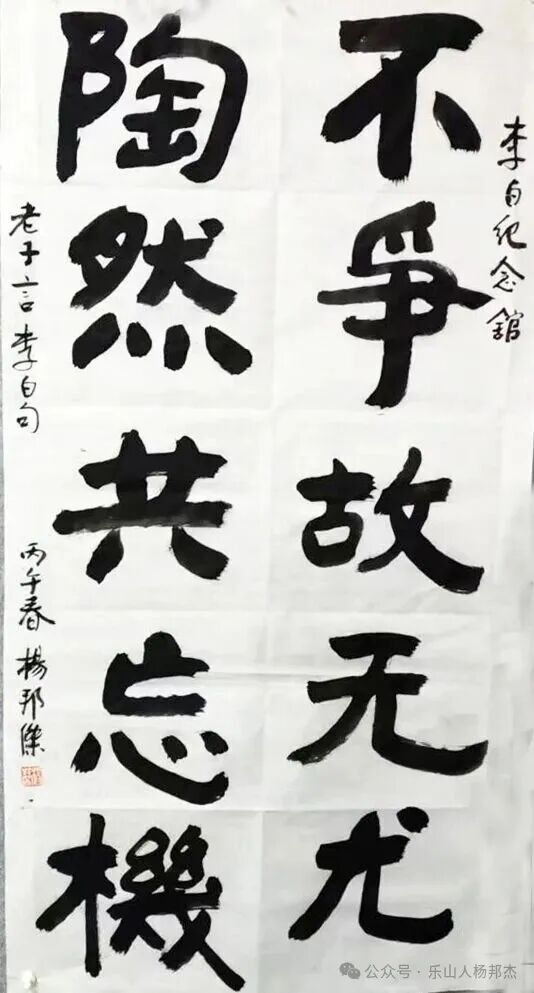 李白纪念館
不爭故无尤
陶然共忘機
老子言李白句
丙午春楊邦傑
公众号·乐山人杨邦杰